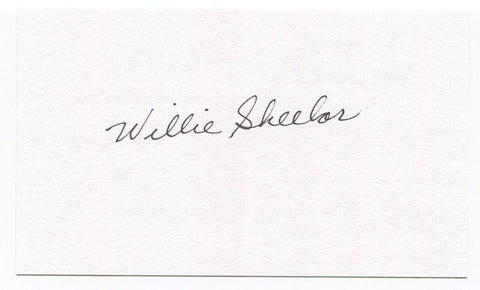 Willie Sheelor